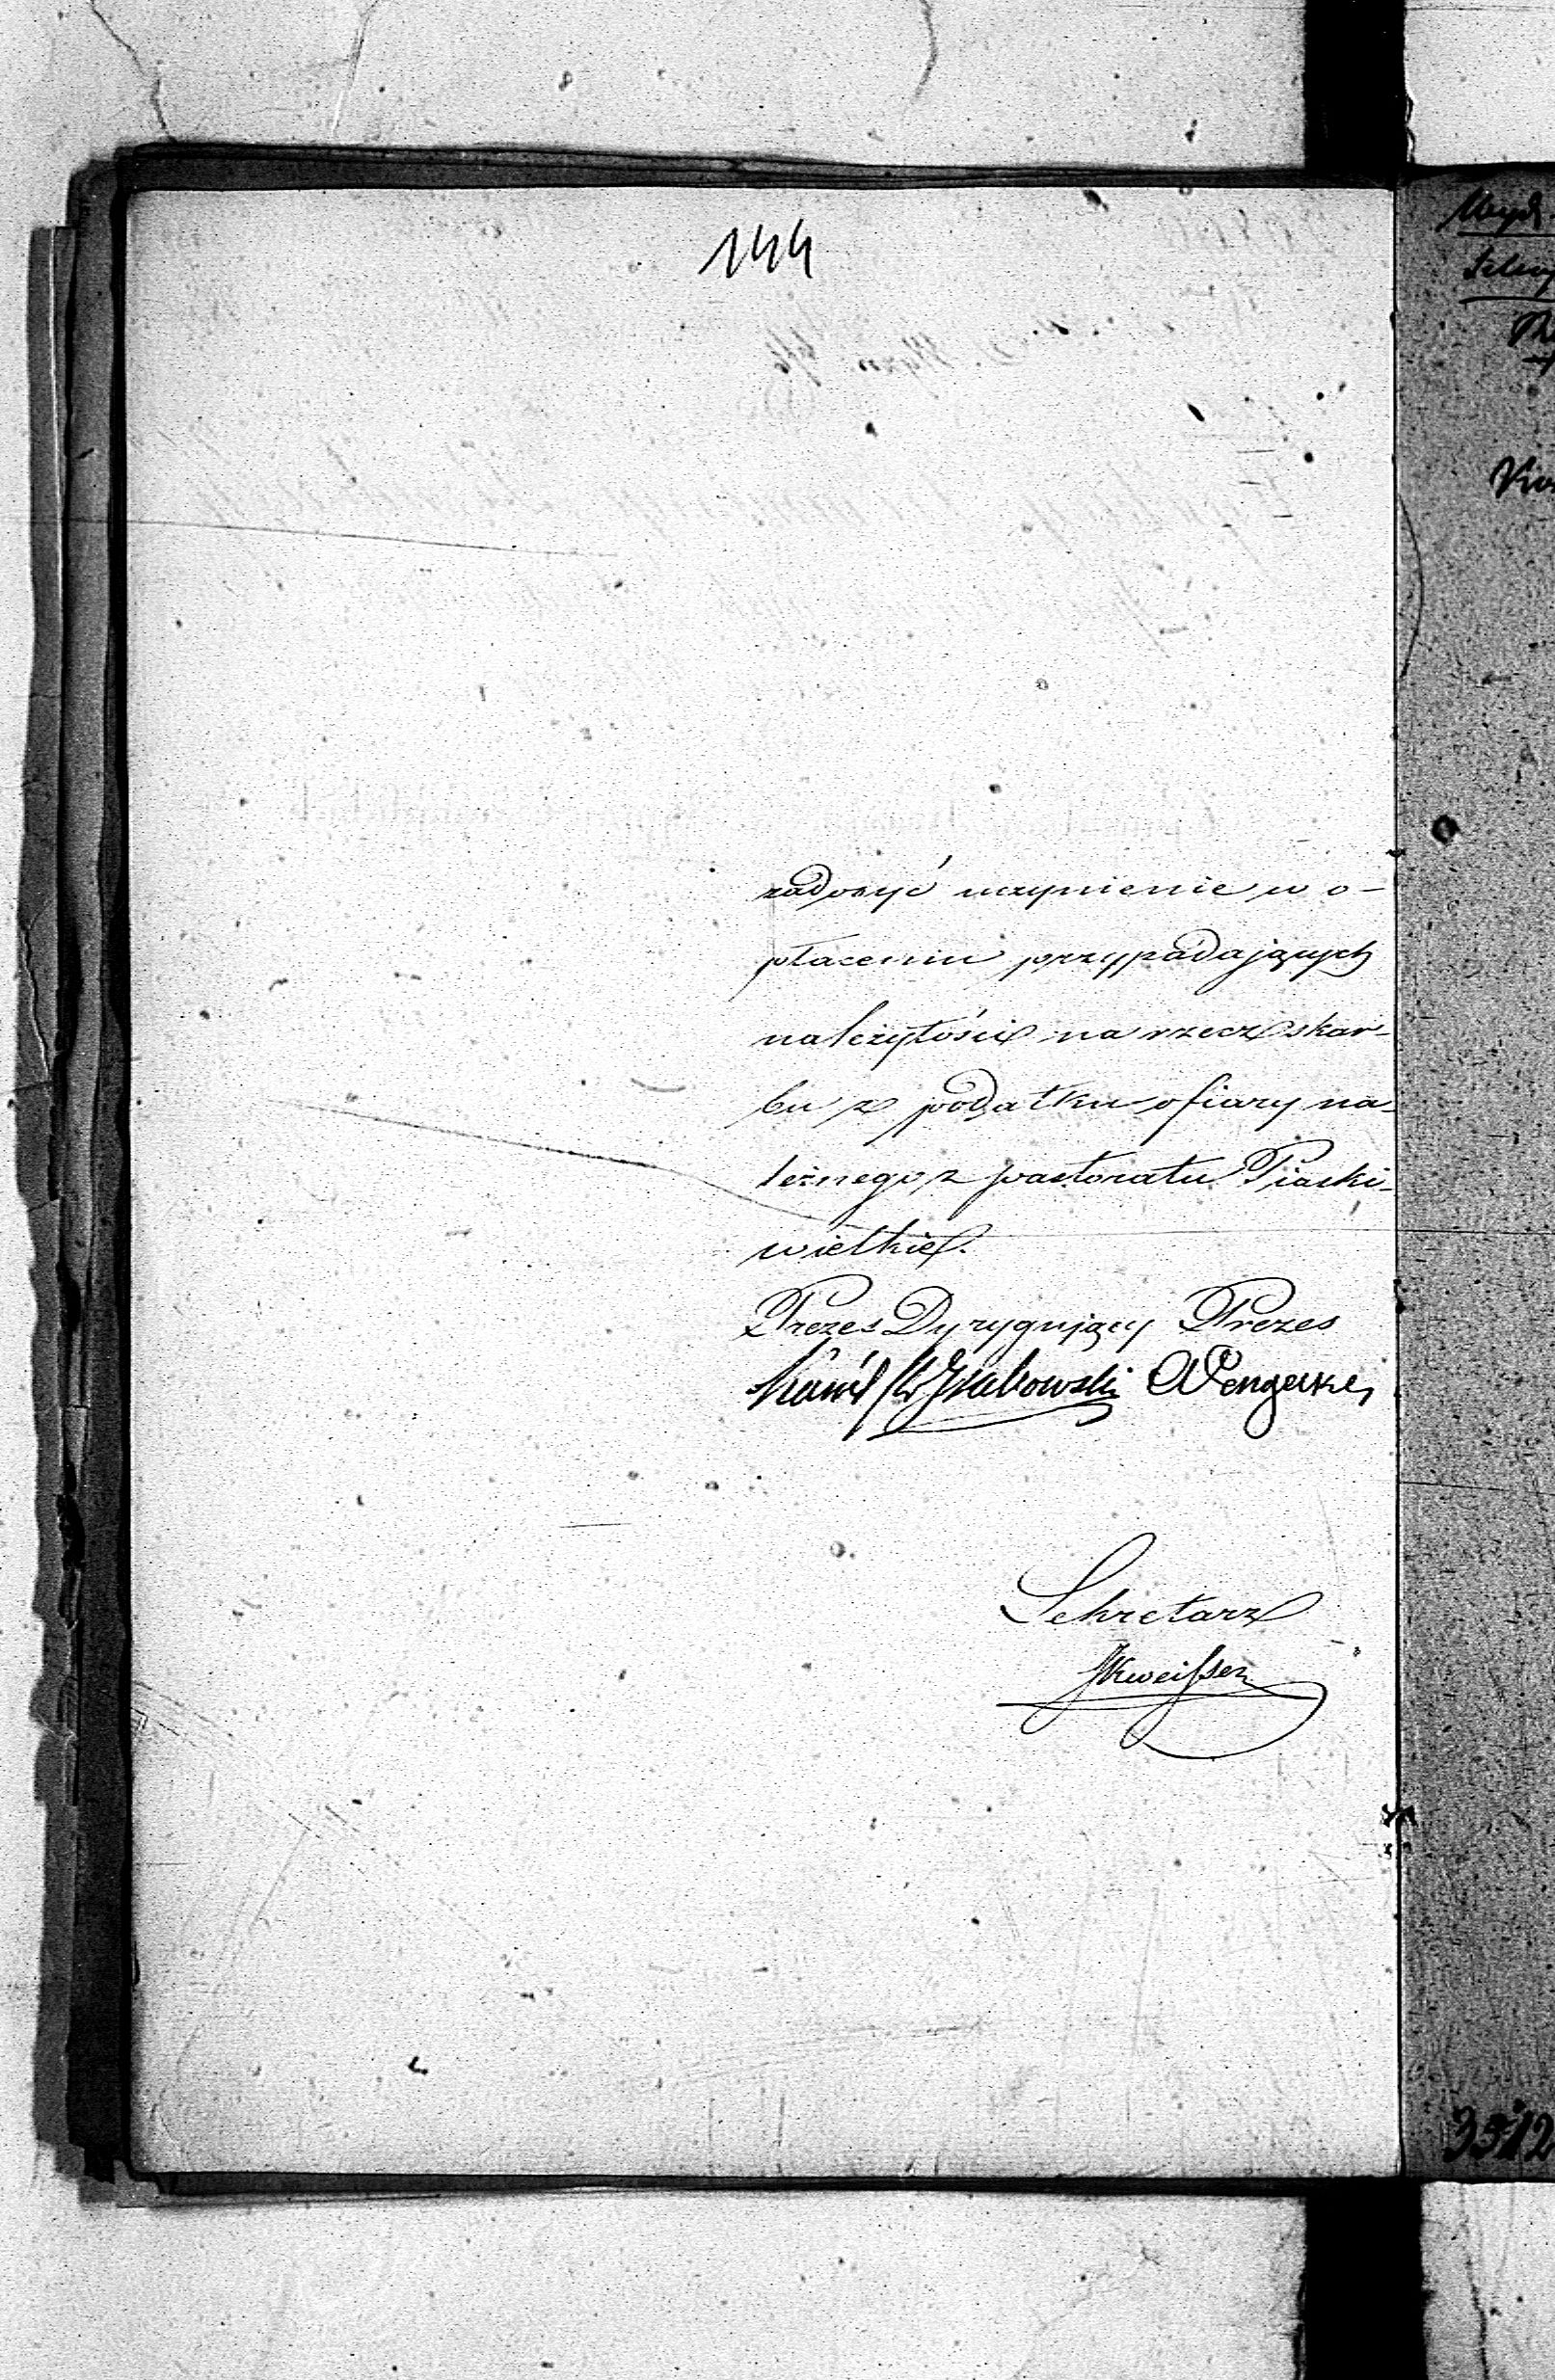 144
zadosyć uczynienie w o-
płaceniu przypadających
należytości na rzecz skar-
bu z podatku ofiary na-
leżnego z pastoratu Piaski-
wielkie.
Prezes Dyrygujący Prezes
Wengecke
Sekretarz
3512